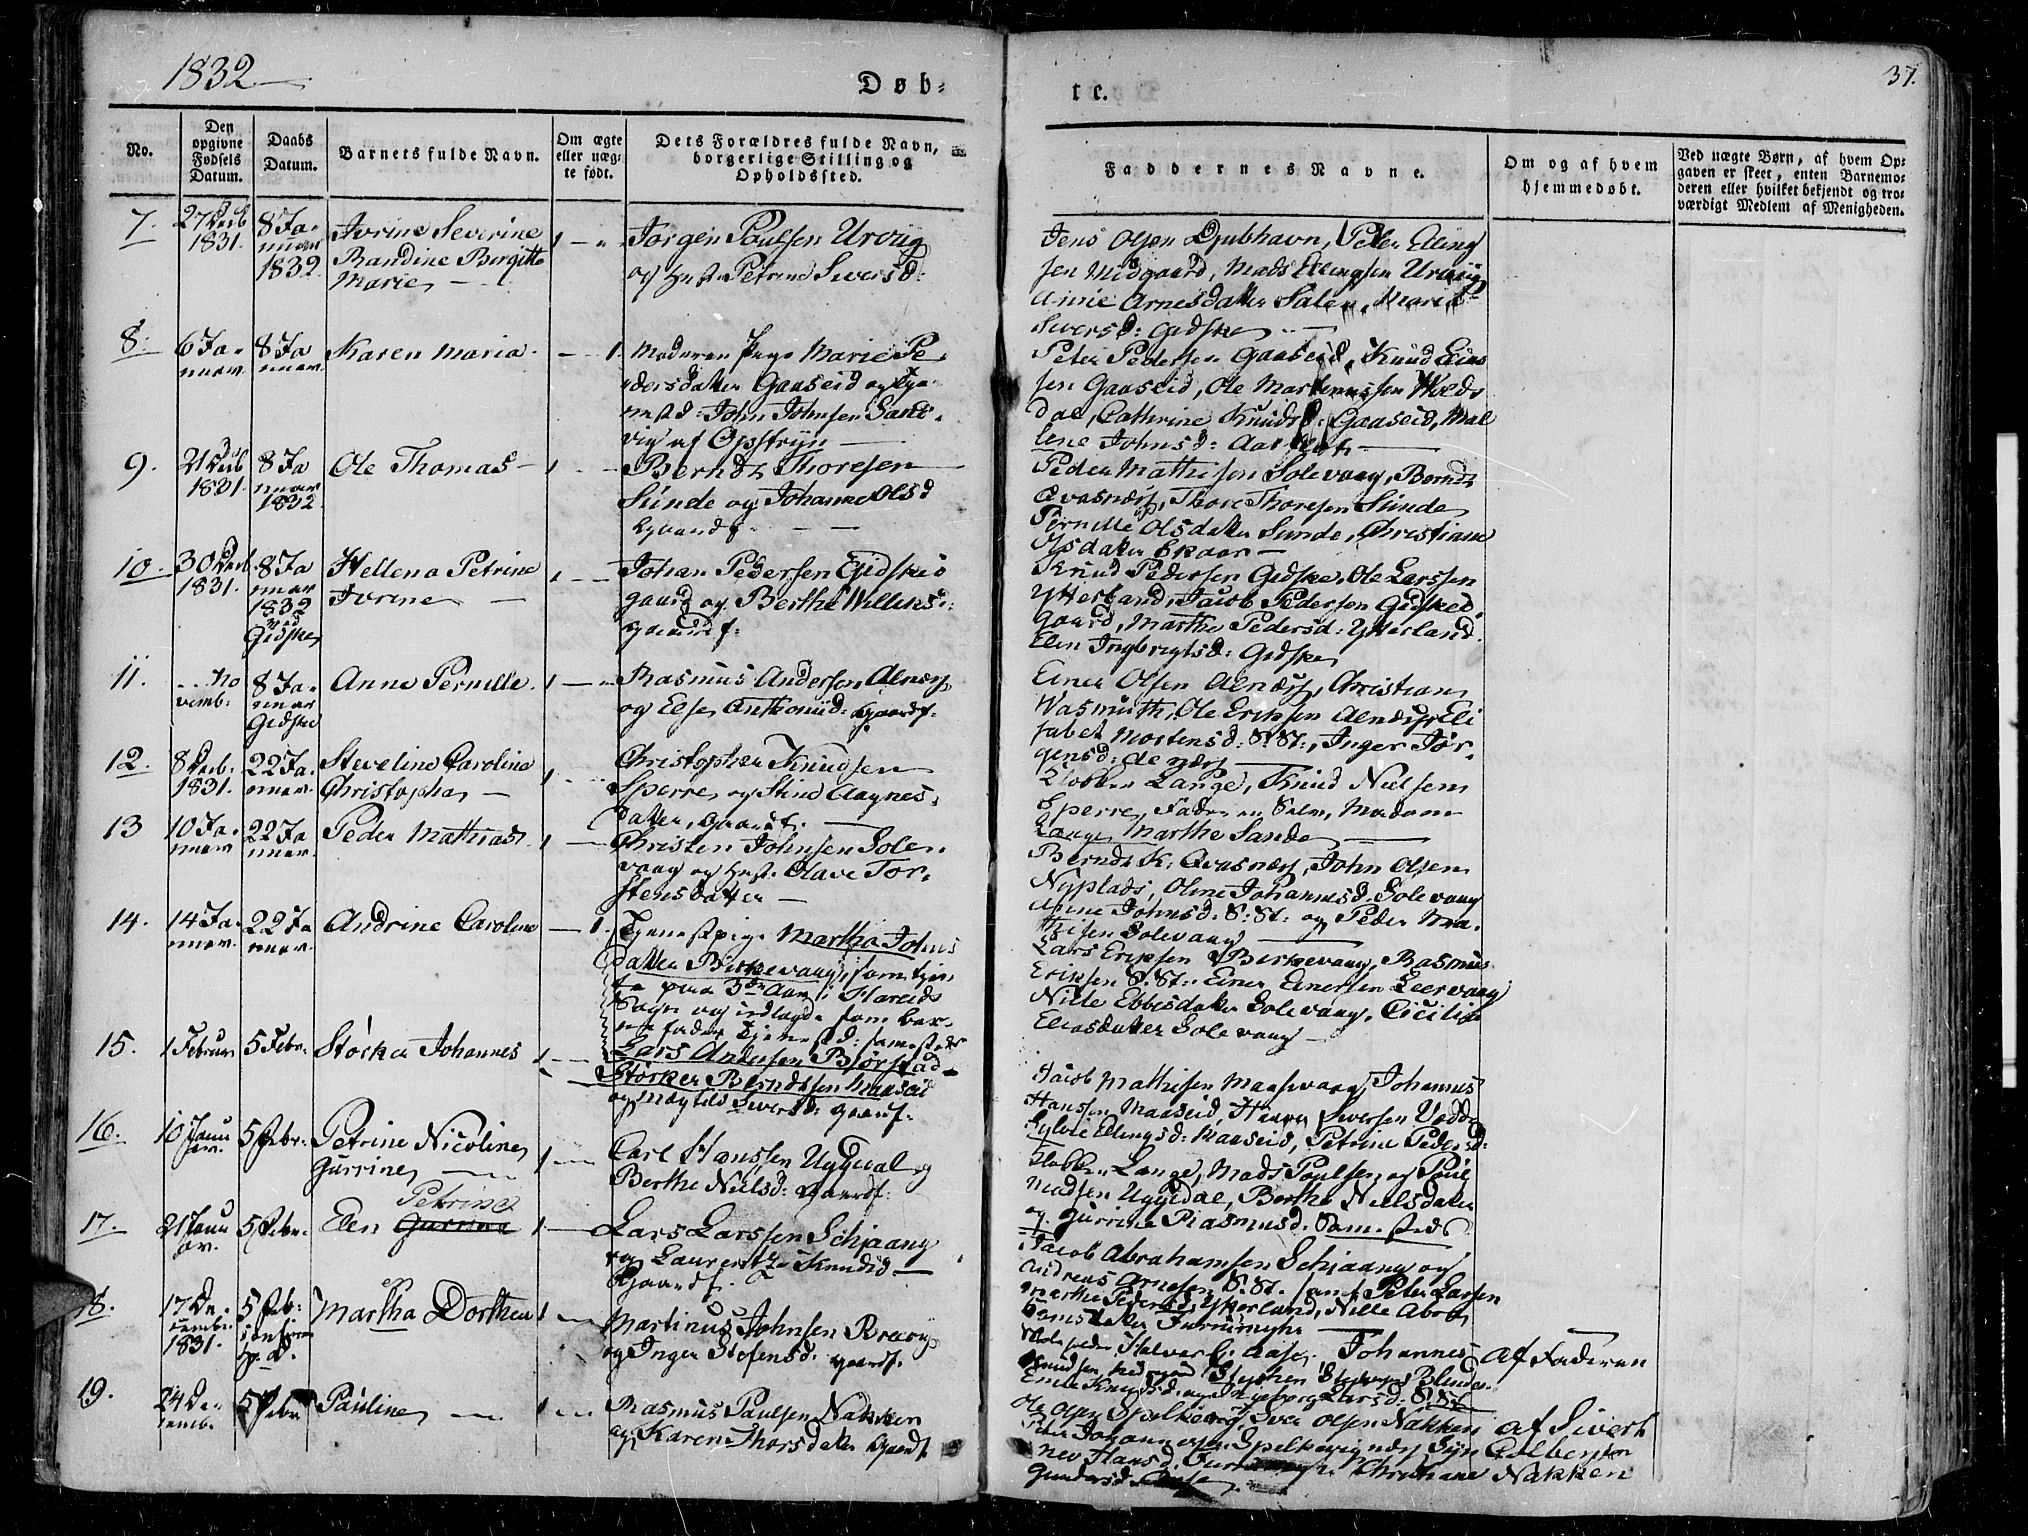 1832
Døb-
te.
37.
No.
Den
opgivne
Fødsels
Datum.
Daabs
Datum.
Barnets fulde Navn.
Om ægte
eller uæg-
te født.
Dets Forældres fulde Navn,
borgerlige Stilling og
Opholdssted.
Faddernes Navne.
Om og af hvem
hjemmedøbt.
Ved uægte Børn, af hvem Op-
gaven er skeet, enten Barnemo-
deren eller hvilket bekjendt og tro-
værdigt Medlem af Menigheden.
7.
27 Decb
1831.
8 Ja-
nuar
1832.
Iverine Severine
Randine Birgitte
Marie
1
Jørgen Paulsen Urvig
og Hust. Petrine Siversd:
Jens Olsen Djubhavn, Peter Elling
sen Midgaard, Mads Ellingsen Urvig
Anne Arnesdatter Salen, Marie
Siversd: Gidske
8.
6 Ja-
nuar
8 Ja
nuar
Karen Maria
1.
Moderen Pige Marie Pe-
dersdatter Gaaseid og
John Johnsen Sand-
vig af Opstryn
Peter Pedersen Gaaseid, Knud
sen Gaaseid, Ole Martinussen Wolds
dal, Cathrine Knudsd: Gaaseid, Mal
lene Johnsd:
9.
21 Decb
1831.
8 Ja
nuar
1832
Ole Thomas
1
Berndt Thoresen
Sunde og Johanne Olsd
Gaardf.
Peder Mathisen Solevaag, Berndt
Qvasnæss, Thore Thoresen Sunde
Pernille Olsdatter Sunde, Christiane
Olsdatter Skaar
10.
30 Decb.
1831.
8 Ja
nuar
1832
ved
Gidske
Hellena Petrine
Ivrine
1
Johan Pedersen Gidske
gaard og Berthe Willumsd:
Gaardf.
Knud Pedersen Gidske, Ole Larssen
Ytterland, Jacob Pedersen Gidske
Gaard, Marthe Pedersd: Ytterland
Elen Ingbrigtsd: Gidske
11.
No
vemb:
8 Ja-
nuar
Gidske
Anne Pernille
1
Rasmus Andersen Alnes
og Else Anthonid: Gaardf.
Einer Olsen Alnæss, Christian
Wasmuth, Ole Eriksen Alnæss, Eli
sabet Mortensd: S. St:, Inger Jør-
gensd: Alnæss
12.
8 Decb.
1831.
22 Ja-
nuar.
Steveline Caroline
Christopha
1
Christopher Knudsen
Sperre og Aagnes-
datter, Gaardf.
Klokker Lange, Knud Nielsen
Sperre, Faderen Selv, Madam
Lange, Marthe Sande
13
10 Ja-
nuar
22 Ja
nuar.
Peder Mathias
1
Christen Johnsen Sole-
vaag og Hust. Olave Tor-
stensdatter
Berndt K. Qvasnæss, John Olsen
Nyplads, Oline Johannesd. Solevaag
Anne Johnsd: S: St: og Peder Ma-
thisen Solevaag
14.
14 Ja-
nuar.
22 Ja
nuar.
Andrine Caroline
1.
Tjenestepige Martha Johns
datter Birkevaag, som tjen
te paa 3die Aar i Hareids
Sogn og udlagde som bar-
nefader Tjenestd: sammesteds
Lars Andersen Bjørstad
Lars Eriksen Birkevaag, Rasmus
Eriksen S. St:, Einer Einersen Leervaag
Nille Ebbesdatter Solevaag, Cicilie
Eliasdatter Solevaag
15.
1 Februar
5 Febr.
Størker Johannes
1
Størker Berndtsen Maaseid
og Magtild Siversd: Gaardf.
Jacob Mathisen Maasevaag, Johannes
Hanssen Maaseid, Iversen Vedde
Sylvie Ellingsd: Maaseid, Petrine Pedersd:
16.
10 Janu
ar.
5 Febr.
Petrine Nicoline
Gurrine
1
Carl Hanssen Uggedal og
Berthe Nielsd: Gaardf.
Klokker Lange, Mads Paulsen og Paul
Madsen Uggedal, Berthe Nielsdatter
og Gurrine Rasmusd. Sam. sted
17.
21 Janu
ar.
5 Febr.
Petrine
Elen Gurrine
1
Lars Larssen Schjaang
og Laurentze Knudsd
Gaardf.
Jacob Abrahamsen Schjaang og
Andreas Arnesen S. St. samt Peter Larsen
Marthe Pedersd. Ytterland, Nille Abra
hamsdatter Furmyhr
18.
17 De-
cembr.
1831.
5 Feb:
Martha Dorthea
1
Martinus Johnsen
og Inger Stefensd: Gaardf.
Halvor Aase, Johannes
Knudsen
Ellen Knudsd: og Ingeborg Larsd: S. St
af Faderen
19.
24 De-
cemb.
5 Febr
Pauline
1
Rasmus Paulsen Nakken
og Karen Thorsdatter Gaardf
Ole Olsen Spelkevig, Iver Olsen Nakken
Peter Johannesen Spelkevignæss
Hansd. Christiane
Gundersd. Aase
af Sivert
Colbensen
Nakken